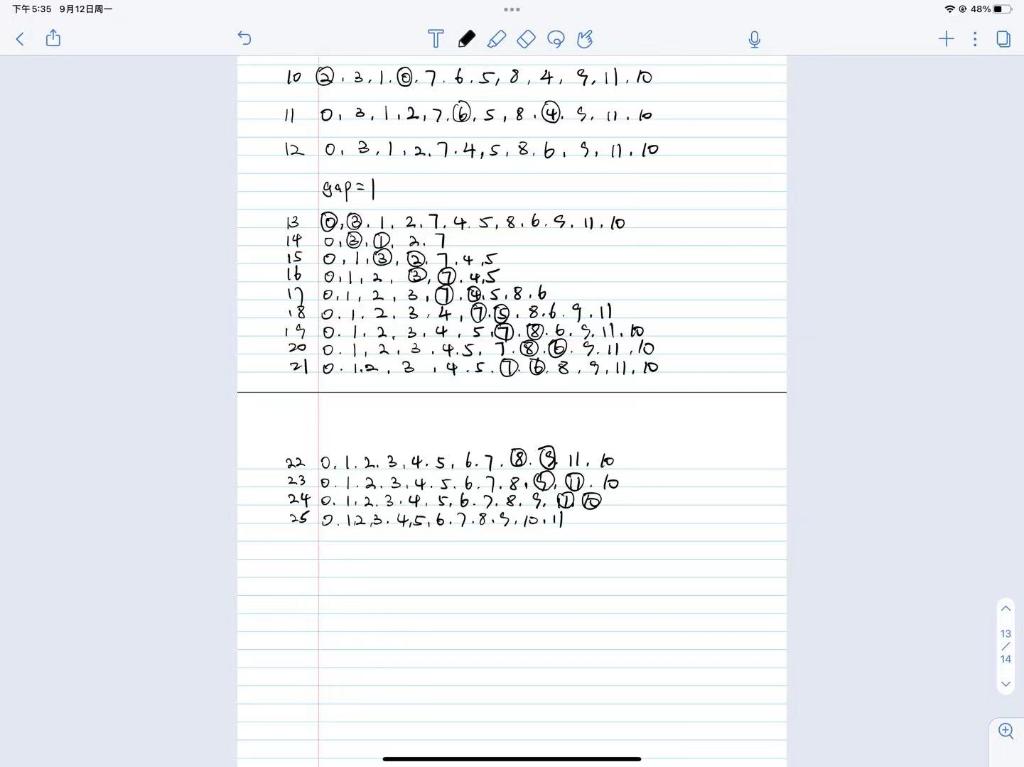 下午5:35 9月12日周一
48%
10 2, 3, 1, 0, 7, 6, 5, 8, 4, 9, 11, 10
11 0, 3, 1, 2, 7, 6, 5, 8, 4, 9, 11, 10
12 0, 3, 1, 2, 7, 4, 5, 8, 6, 9, 11, 10
gap=1
13 0, 3, 1, 2, 7, 4, 5, 8, 6, 9, 11, 10
14 0, 3, 1, 2, 7
15 0, 1, 3, 2, 7, 4, 5
16 0, 1, 2, 3, 7, 4, 5
17 0, 1, 2, 3, 7, 4, 5, 8, 6
18 0, 1, 2, 3, 4, 7, 5, 8, 6, 9, 11
19 0, 1, 2, 3, 4, 5, 7, 8, 6, 9, 11, 10
20 0, 1, 2, 3, 4, 5, 7, 8, 6, 9, 11, 10
21 0, 1, 2, 3, 4, 5, 7, 6, 8, 9, 11, 10
22 0, 1, 2, 3, 4, 5, 6, 7, 8, 9, 11, 10
23 0, 1, 2, 3, 4, 5, 6, 7, 8, 9, 11, 10
24 0, 1, 2, 3, 4, 5, 6, 7, 8, 9, 11, 10
25 0, 1, 2, 3, 4, 5, 6, 7, 8, 9, 10, 11
13
/
14